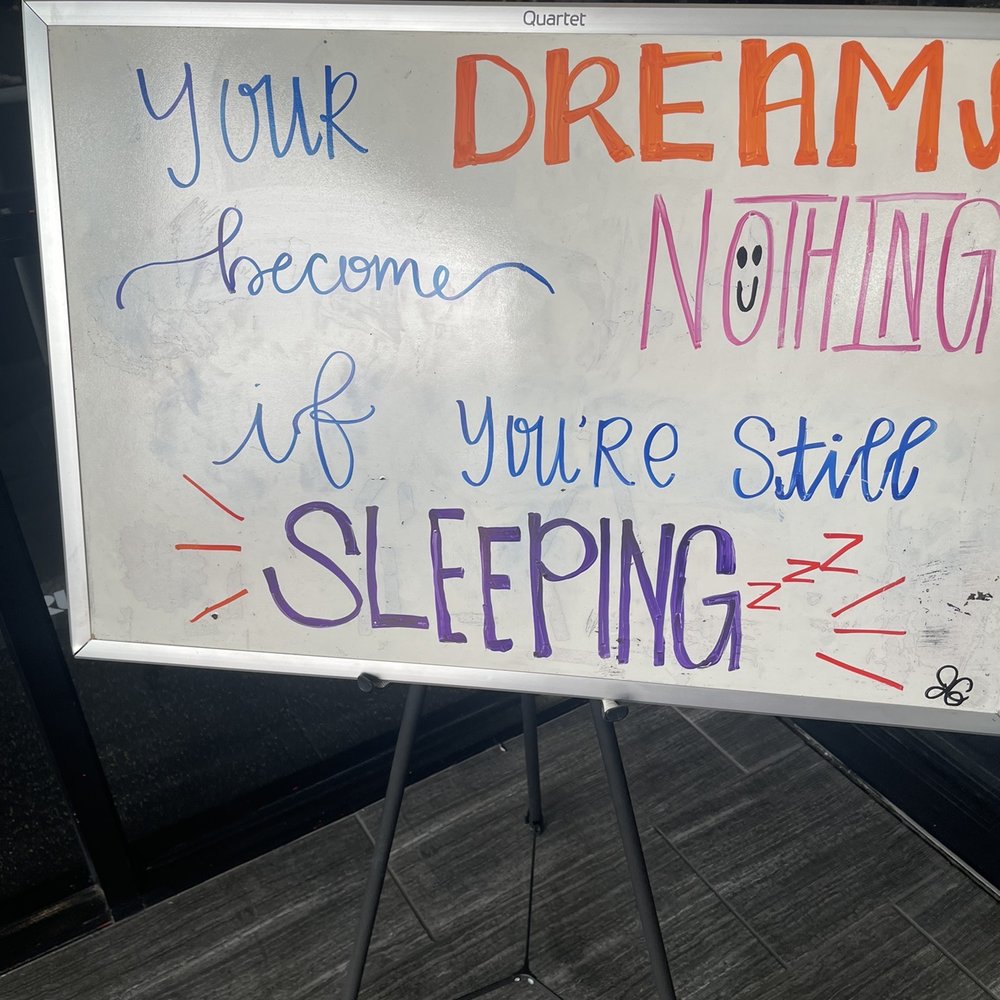 Quartet
YOUR DREAMS
become NOTHING
if YOU'RE Still
SLEEPING zzz